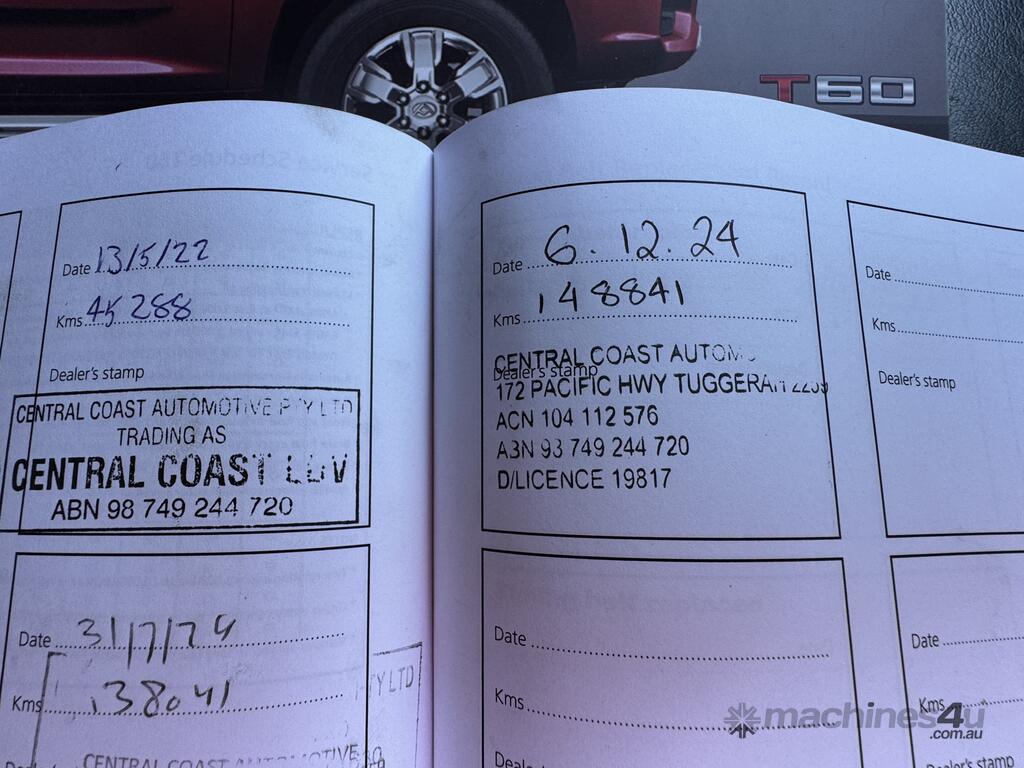 T60
Date 13/5/22
Kms 45 288
Dealer's stamp
CENTRAL COAST AUTOMOTIVE PTY LTD
TRADING AS
CENTRAL COAST LDV
ABN 98 749 244 720
Date 31/7/24
Kms 138041
PTY LTD
CENTRAL COAST AUTOMOTIVE
Date 6.12.24
Kms 148841
CENTRAL COAST AUTOMO
Dealer's stamp
172 PACIFIC HWY TUGGERAH 2259
ACN 104 112 576
ABN 98 749 244 720
D/LICENCE 19817
Date
Kms
Date
Kms
Dealer's stamp
Date
Kms
Dealer's stamp
machines4u
.com.au